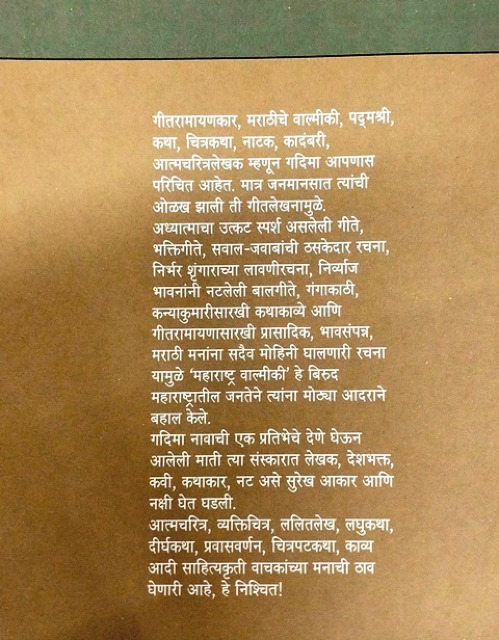 गीतरामायणकार, मराठीचे वाल्मीकी, पद्मश्री,
कथा, चित्रकथा, नाटक, कादंबरी,
आत्मचरित्रलेखक म्हणून गदिमा आपणास
परिचित आहेत. मात्र जनमानसात त्यांची
ओळख झाली ती गीतलेखनामुळे.
अध्यात्माचा उत्कट स्पर्श असलेली गीते,
भक्तिगीते, सवाल-जवाबांची ठसकेदार रचना,
निर्भर शृंगाराच्या लावणीरचना, निर्व्याज
भावनांनी नटलेली बालगीते, गंगाकाठी,
कन्याकुमारीसारखी कथाकाव्ये आणि
गीतरामायणासारखी प्रासादिक, भावसंपन्न,
मराठी मनांना सदैव मोहिनी घालणारी रचना
यामुळे ‘महाराष्ट्र वाल्मीकी’ हे बिरुद
महाराष्ट्रातील जनतेने त्यांना मोठ्या आदराने
बहाल केले.
गदिमा नावाची एक प्रतिभेचे देणे घेऊन
आलेली माती त्या संस्कारात लेखक, देशभक्त,
कवी, कथाकार, नट असे सुरेख आकार आणि
नक्षी घेत घडली.
आत्मचरित्र, व्यक्तिचित्र, ललितलेख, लघुकथा,
दीर्घकथा, प्रवासवर्णन, चित्रपटकथा, काव्य
आदी साहित्यकृती वाचकांच्या मनाची ठाव
घेणारी आहे, हे निश्चित!